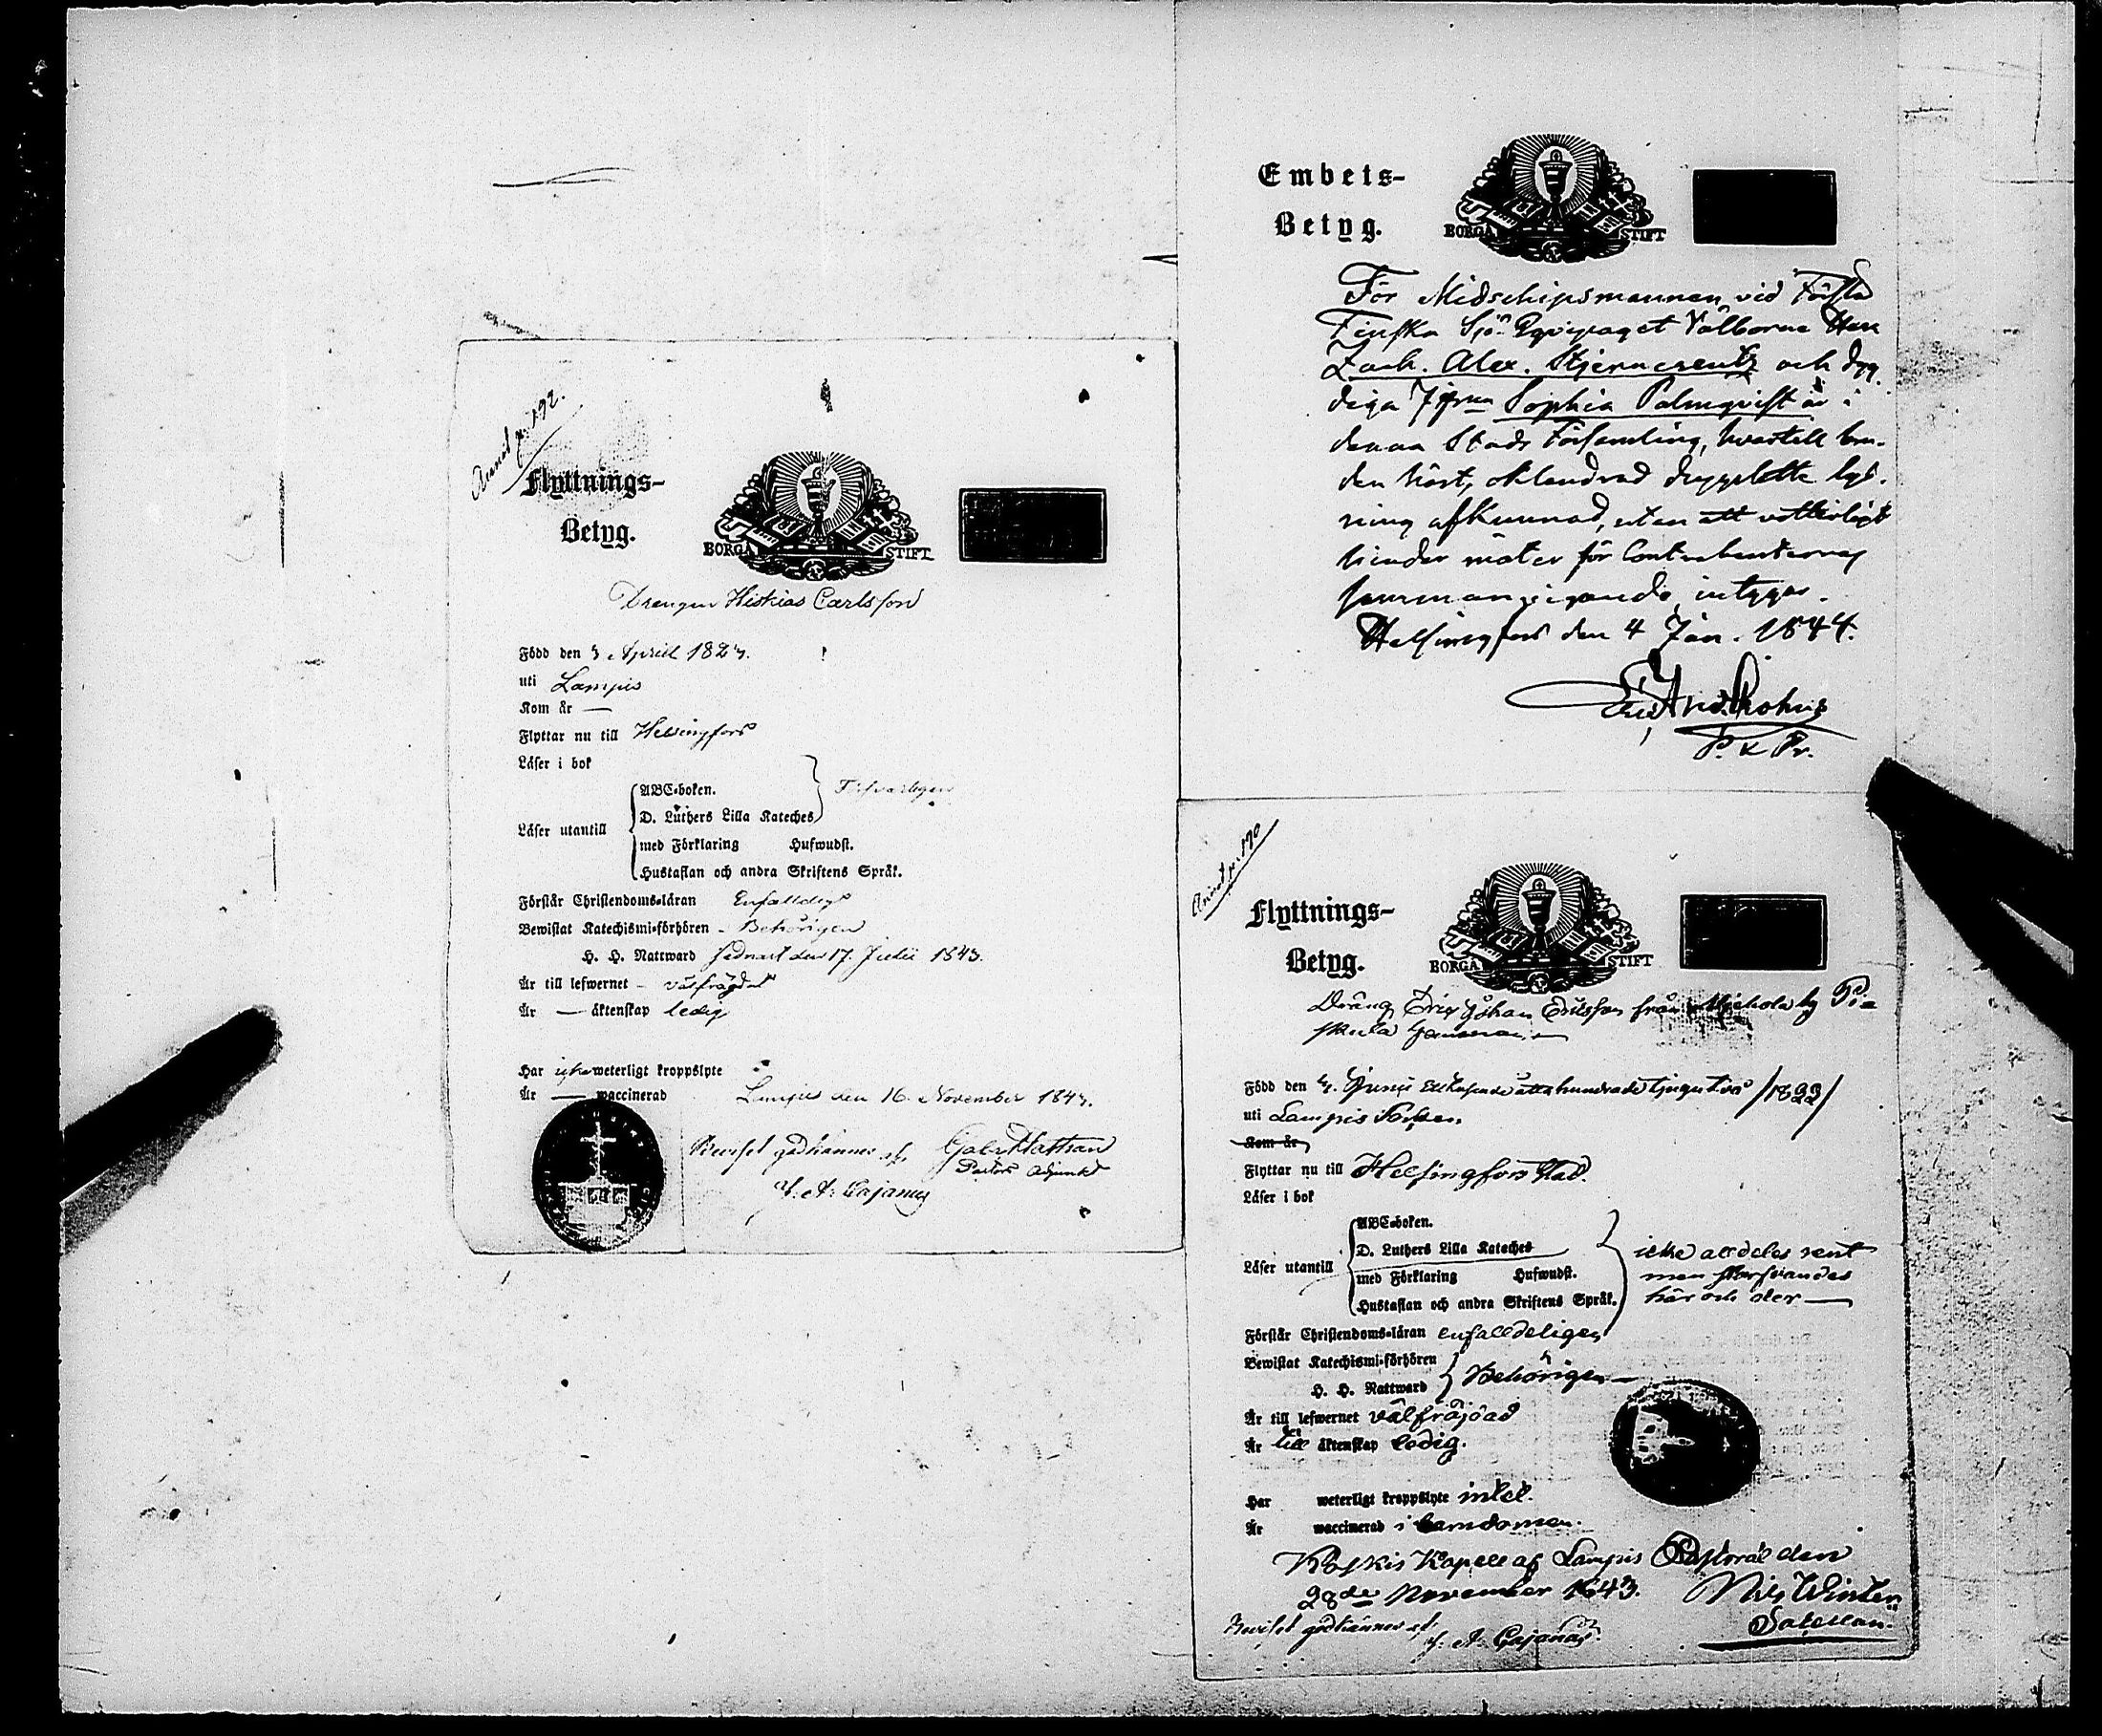 Annot p. 192.
Flyttnings-
Betyg.
BORGÅ STIFT
Drengen Hiskias Carlsson
Född den 3 April 1823.
uti Lampis
Kom år —
Flyttar nu till Helsingfors
Läser i bok
Läser utantill
ABC-boken.
D. Luthers Lilla Kateches
med Förklaring Hufwudst.
Hustaflan och andra Skriftens Språk.
Förstår Christendoms-läran Enfalldigt
Bewistat Katechismi-förhören - Behörigen
H. H. Nattward sednast den 17. Julii 1843.
Är till lefwernet - välfrägdad
Är — äktenskap ledig
Har icke weterligt kroppslyte
Är — waccinerad
Lampis den 16. November 1843.
Beviset godkännes af. Gabr. Mattsson
Pastors Adjunkt
A. Cajanus
Embets-
Betyg.
BORGÅ STIFT
För Midschipsmannen vid Första
Finska Sjö-Eqvipaget Välborne Herr
Zach. Alex. Stjerncreutz och dyg-
diga Jgfrun Sophia Palmqvist är i
denna Stads Församling, hvartill bru-
den hört, oklandrad lys-
ning afkunnad, utan att vetterligt
hinder möter för Contrahenternes
intygar.
Helsingfors den 4 Jan. 1844.
P. & Pr.
Annot p. 190
Flyttnings-
Betyg.
BORGÅ STIFT
Dräng Eric Johan Ericsson från by
Född den Junii Ett tusende åtta hundrade tjugu två /1822/
uti Lampis Socken
Kom år
Flyttar nu till Helsingfors Stad.
Läser i bok
Läser utantill
ABC-boken.
D. Luthers Lilla Kateches
med Förklaring Hufwudst.
Hustaflan och andra Skriftens Språk.
icke alldeles rent
men
här och der —
Förstår Christendoms-läran enfalldeligen
Bewistat Katechismi-förhören
H. H. Nattward
Behörigen —
Är till lefwernet välfräjdad
Är till äktenskap ledig.
Har weterligt kroppslyte intet.
Är waccinerad i barndomen.
Koskis Kapell af Lampis Pastorat den
28de November 1843. Nils Winter
Sacellan.
Beviset godkännes af.
A. Cajanus.